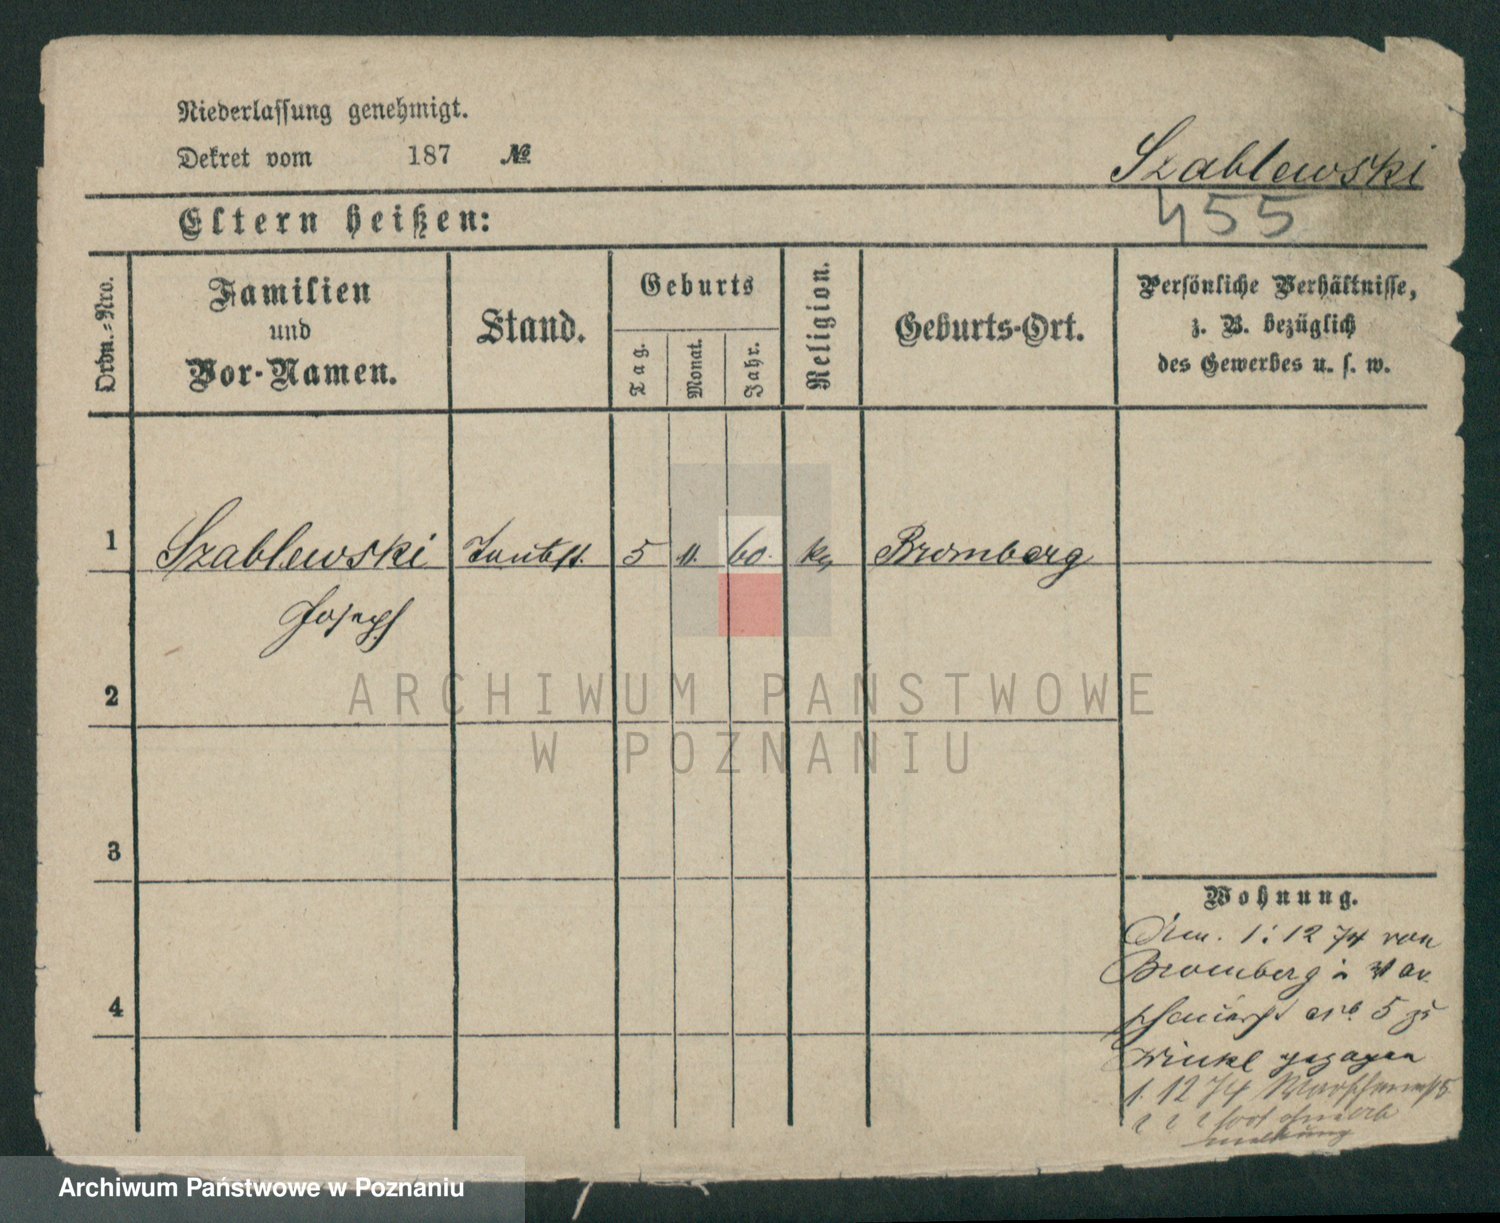 Niederlassung genehmigt.
Dekret vom 187 №
Szablewski
455
Eltern heißen:
Ordn.-Nro.
Familien
und
Vor-Namen.
Stand.
Geburts
Tag.
Monat.
Jahr.
Religion.
Geburts-Ort.
Persönliche Verhältnisse,
z. B. bezüglich
des Gewerbes u. s. w.
1 Szablewski Taubst. 5 11. 60. k. Bromberg
Joseph
2
3
4
Wohnung.
1. 12 74 von
Bromberg
5 zu
Winkl gezogen
1. 12 74
ARCHIWUM PAŃSTWOWE
W POZNANIU
Archiwum Państwowe w Poznaniu